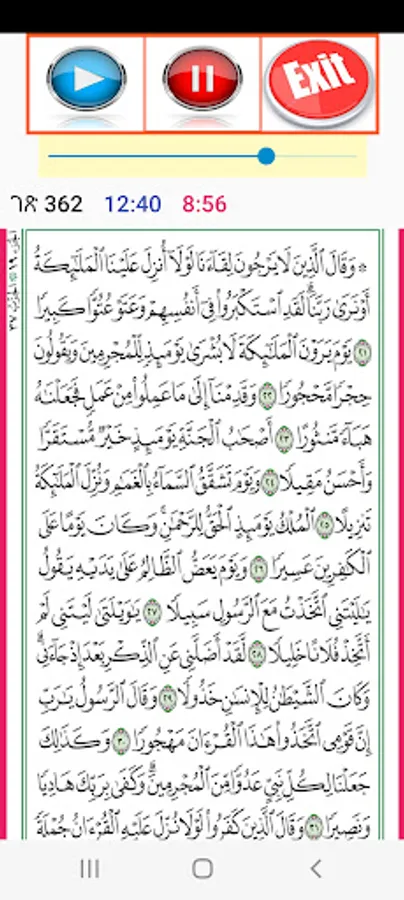 Exit
ገጽ 362 12:40 8:56
الجزء ١٩ الحزب ٣٧
۞ وَقَالَ الَّذِينَ لَا يَرْجُونَ لِقَاءَنَا لَوْلَا أُنزِلَ عَلَيْنَا الْمَلَٰئِكَةُ
أَوْ نَرَىٰ رَبَّنَا ۗ لَقَدِ اسْتَكْبَرُوا فِي أَنفُسِهِمْ وَعَتَوْ عُتُوًّا كَبِيرًا
٢١ يَوْمَ يَرَوْنَ الْمَلَٰئِكَةَ لَا بُشْرَىٰ يَوْمَئِذٍ لِّلْمُجْرِمِينَ وَيَقُولُونَ
حِجْرًا مَّحْجُورًا ٢٢ وَقَدِمْنَا إِلَىٰ مَا عَمِلُوا مِنْ عَمَلٍ فَجَعَلْنَٰهُ
هَبَاءً مَّنثُورًا ٢٣ أَصْحَٰبُ الْجَنَّةِ يَوْمَئِذٍ خَيْرٌ مُّسْتَقَرًّا
وَأَحْسَنُ مَقِيلًا ٢٤ وَيَوْمَ تَشَقَّقُ السَّمَاءُ بِالْغَمَٰمِ وَنُزِّلَ الْمَلَٰئِكَةُ
تَنزِيلًا ٢٥ الْمُلْكُ يَوْمَئِذٍ الْحَقُّ لِلرَّحْمَٰنِ ۚ وَكَانَ يَوْمًا عَلَى
الْكَٰفِرِينَ عَسِيرًا ٢٦ وَيَوْمَ يَعَضُّ الظَّالِمُ عَلَىٰ يَدَيْهِ يَقُولُ
يَٰلَيْتَنِي اتَّخَذْتُ مَعَ الرَّسُولِ سَبِيلًا ٢٧ يَٰوَيْلَتَىٰ لَيْتَنِي لَمْ
أَتَّخِذْ فُلَانًا خَلِيلًا ٢٨ لَّقَدْ أَضَلَّنِي عَنِ الذِّكْرِ بَعْدَ إِذْ جَاءَنِي ۗ
وَكَانَ الشَّيْطَٰنُ لِلْإِنسَٰنِ خَذُولًا ٢٩ وَقَالَ الرَّسُولُ يَٰرَبِّ
إِنَّ قَوْمِي اتَّخَذُوا هَٰذَا الْقُرْءَانَ مَهْجُورًا ٣٠ وَكَذَٰلِكَ
جَعَلْنَا لِكُلِّ نَبِيٍّ عَدُوًّا مِّنَ الْمُجْرِمِينَ ۗ وَكَفَىٰ بِرَبِّكَ هَادِيًا
وَنَصِيرًا ٣١ وَقَالَ الَّذِينَ كَفَرُوا لَوْلَا نُزِّلَ عَلَيْهِ الْقُرْءَانُ جُمْلَةً